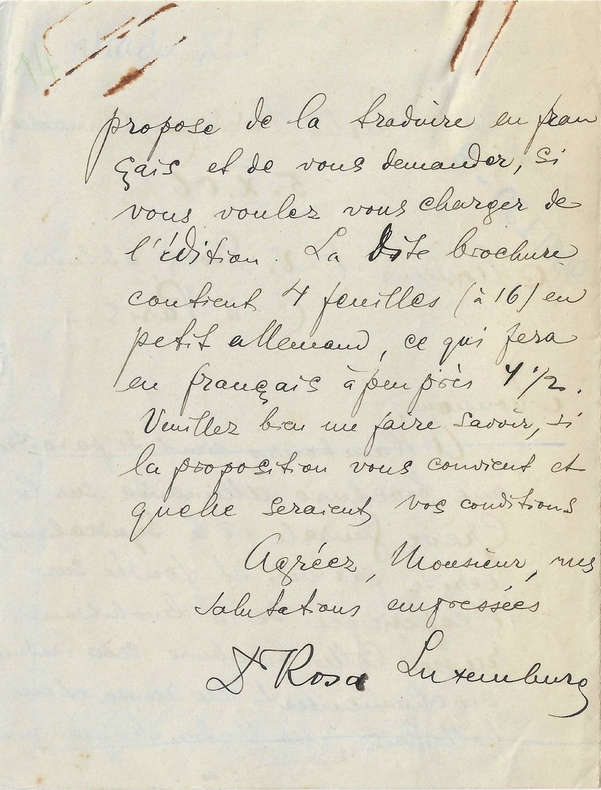 propose de la traduire en fran
çais et de vous demander, si
vous voulez vous charger de
l'édition. La dite brochure
contient 4 feuilles (à 16) en
petit allemand, ce qui fera
en français à peu près 4 1/2.
Veuillez bien me faire savoir, si
la proposition vous convient et
quelle seraient vos conditions
Agréez, Monsieur, mes
salutations empressées
Dr Rosa Luxemburg